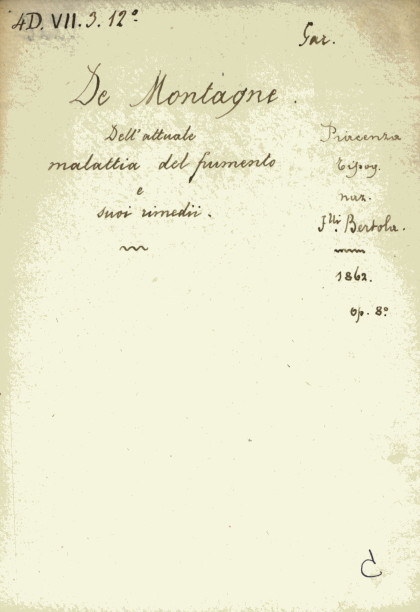 4D. VII. 3. 12°
Gar.
De Montagne.
Dell'attuale
malattia del frumento
e
suoi rimedii.
Piacenza
Tipog.
naz.
Flli Bertola.
1862.
op. 8°
C